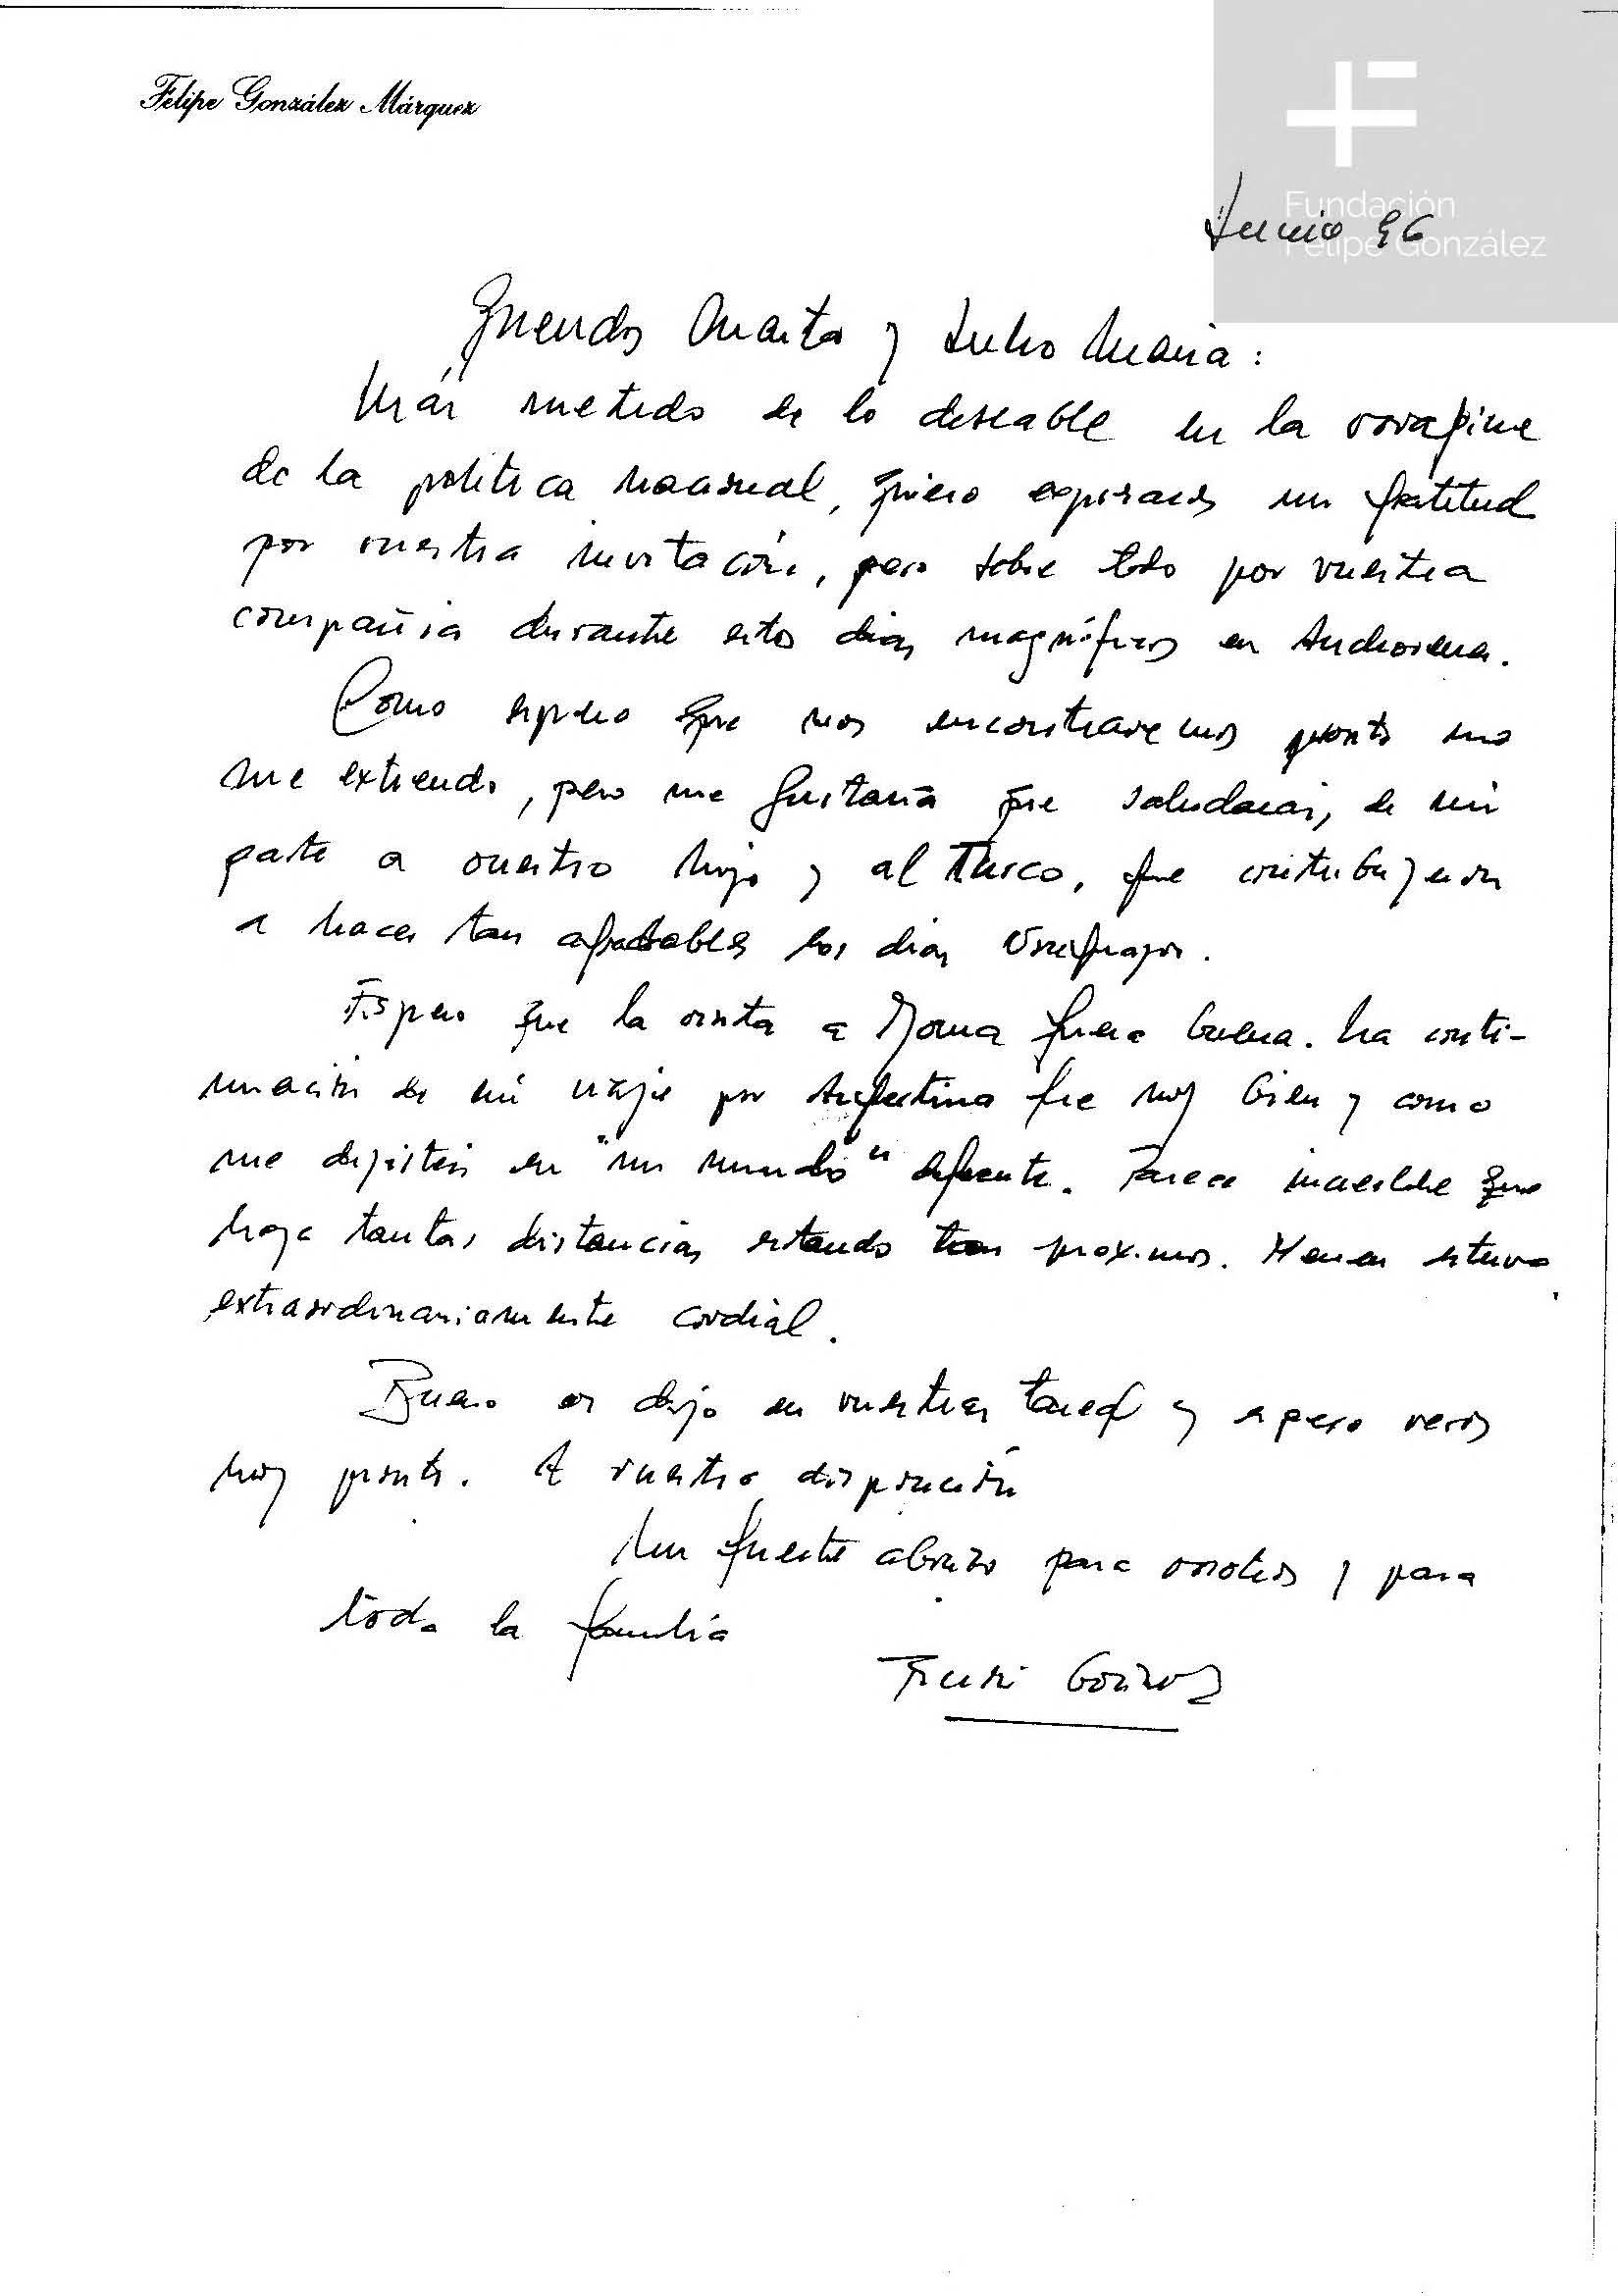 Felipe González Márquez
Fundación
Felipe González
Junio 96
Queridos Marta y Julio María:
Más metido de lo deseable en la vorágine
de la política nacional, quiero expresaros mi gratitud
por vuestra invitación, pero sobre todo por vuestra
compañía durante estos días magníficos en Anchorena.
Como espero que nos encontraremos pronto no
me extiendo, pero me gustaría que saludarais, de mi
parte a vuestro hijo y al Turco, que contribuyeron
a hacer tan agradables los días
Espero que la visita a Roma fuera buena. La conti-
nuación de mi viaje por Argentina fue muy bien y como
me dijisteis en "un mundo" diferente. Parece increíble que
haya tantas distancias estando tan próximos. Menem estuvo
extraordinariamente cordial.
Bueno os dejo en vuestras tareas y espero veros
muy pronto. A vuestra disposición
Un fuerte abrazo para vosotros y para
toda la familia